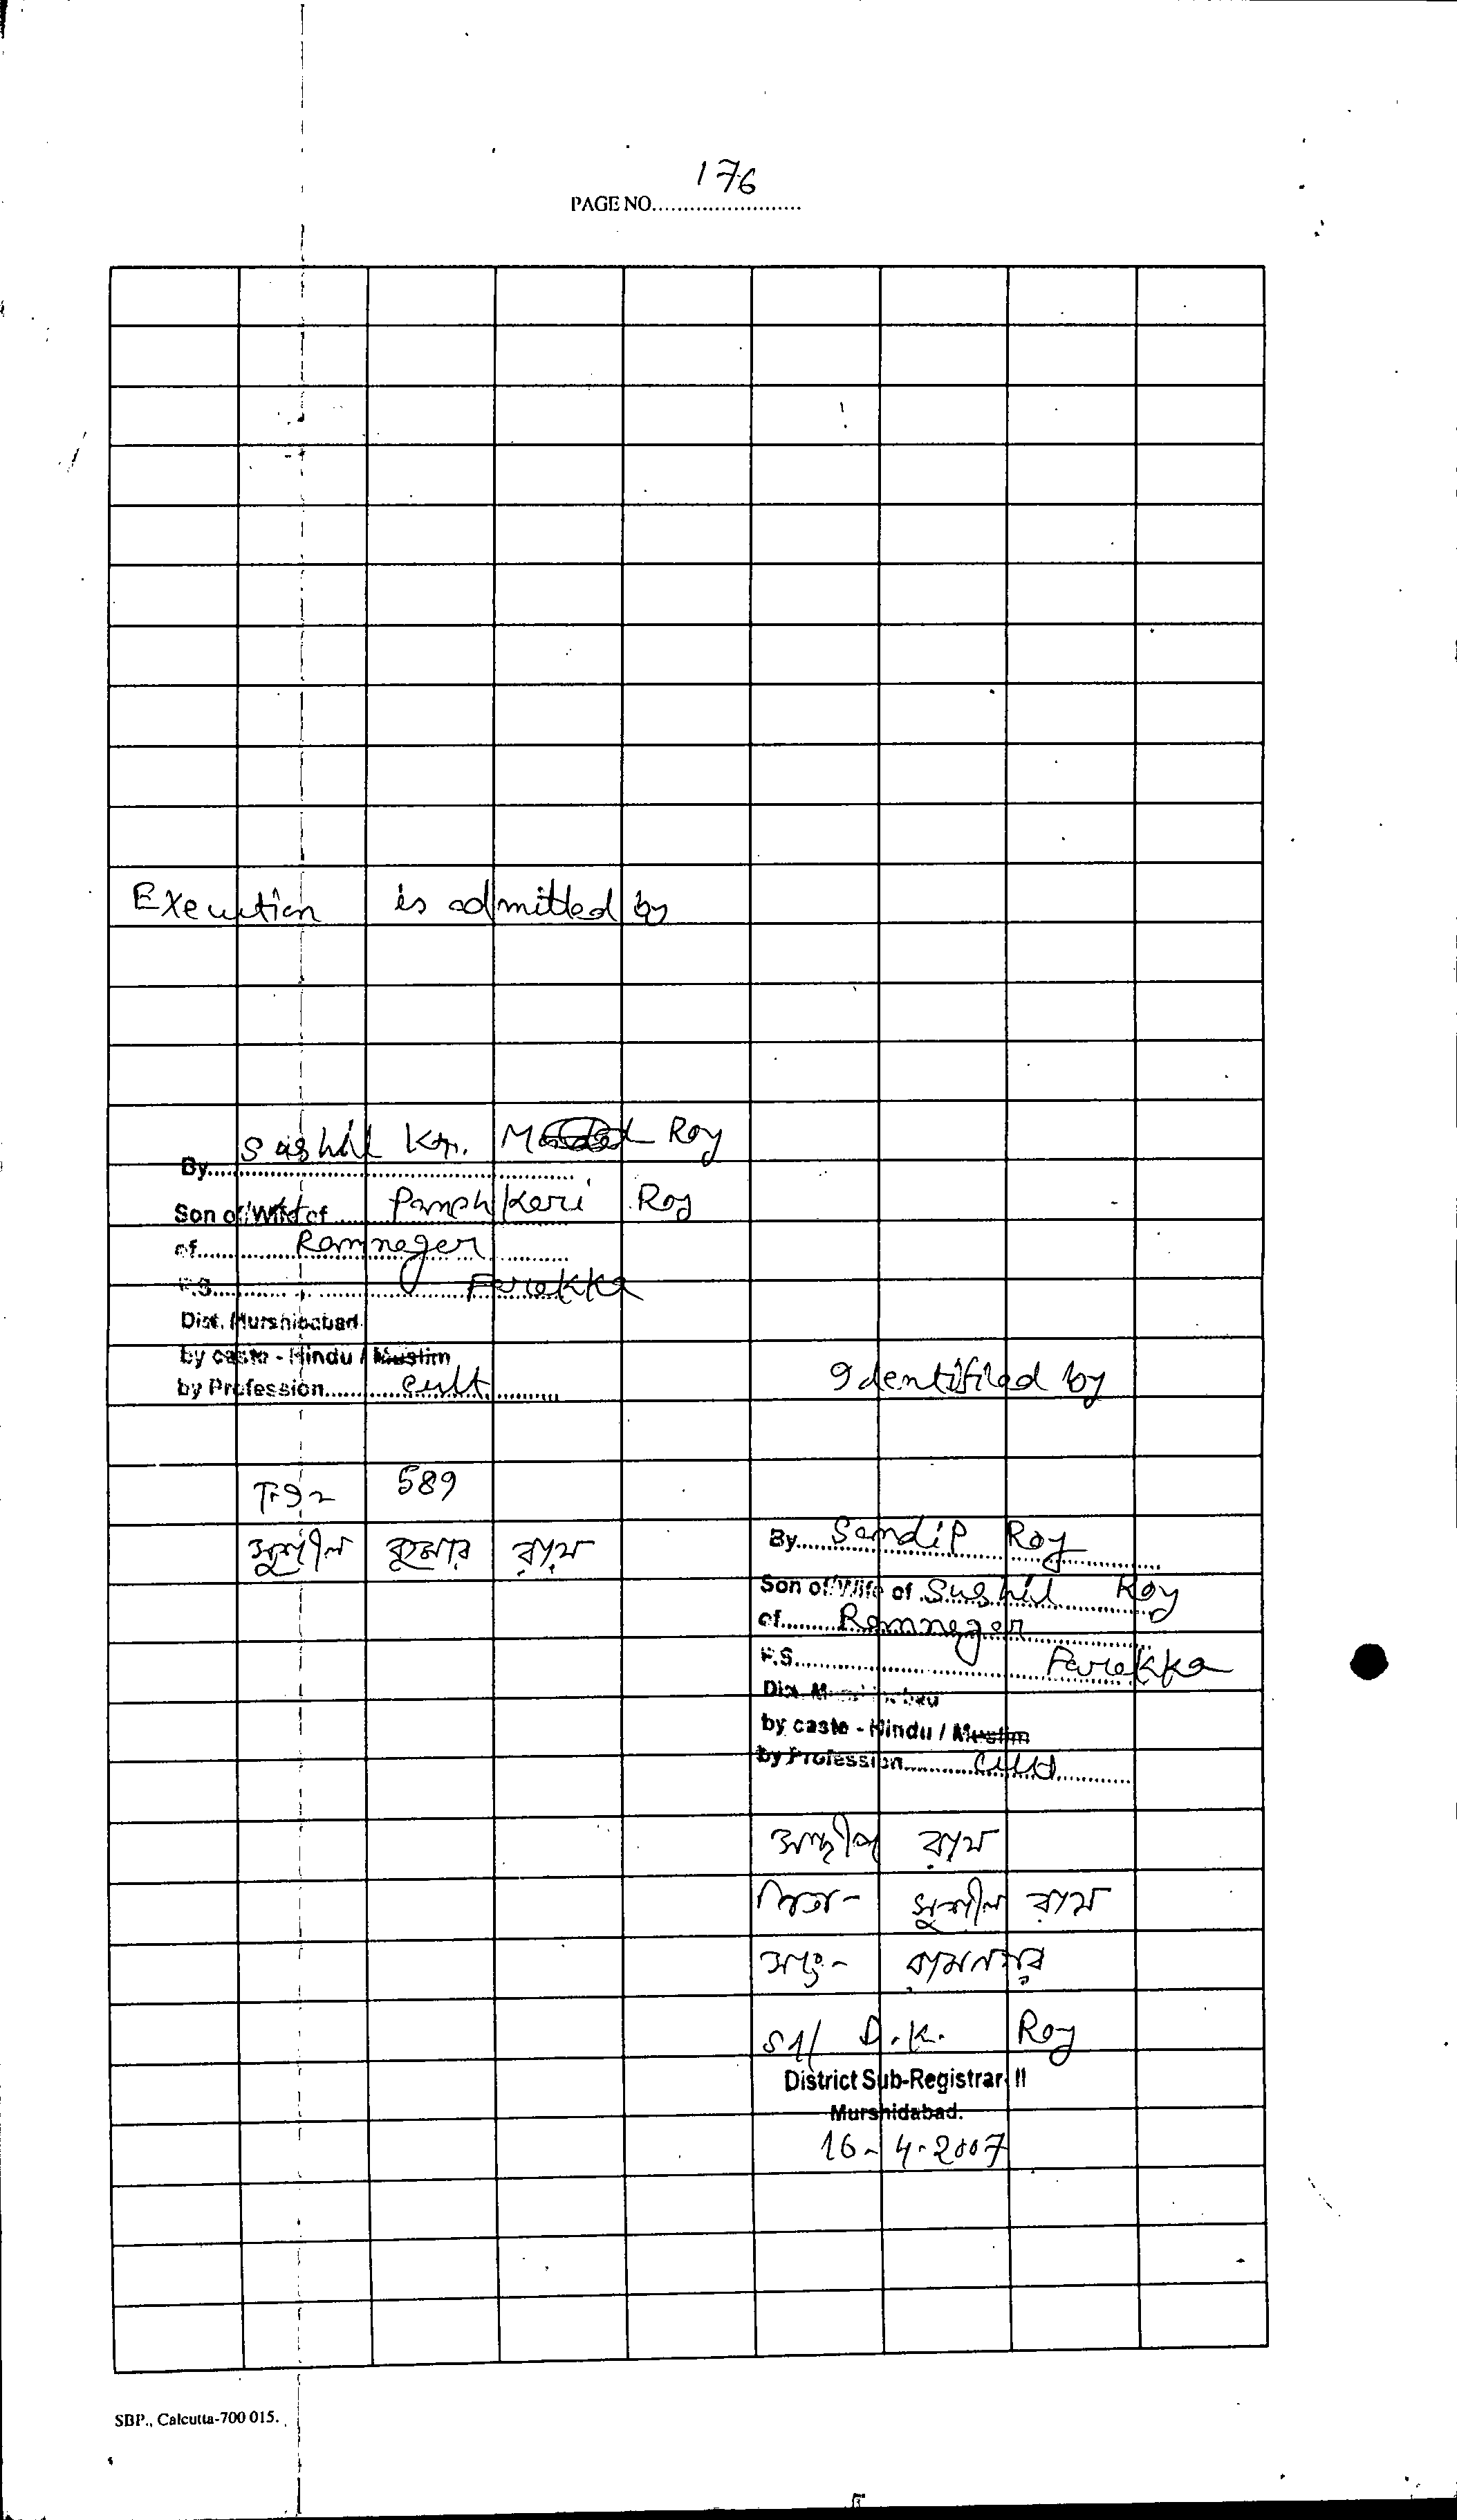 176
PAGE NO........................
Execution is admitted by
By Sushil Kr. Roy
Son of/Wife of Panchkari Roy
of Ramnager
P.S. Farakka
Dist. Murshidabad
by caste - Hindu / Muslim
by Profession cult
Identified by
589
সুশীল কুমার রায়
By Sandip Roy
Son of/Wife of Sushil Roy
of Ramnager
P.S. Farakka
Dist. Murshidabad
by caste - Hindu / Muslim
by Profession cult
সন্দীপ রায়
পিতা- সুশীল রায়
সাং- রামনগর
Sd/ D.K. Roy
District Sub-Registrar II
Murshidabad.
16-4-2007
SBP., Calcutta-700 015.